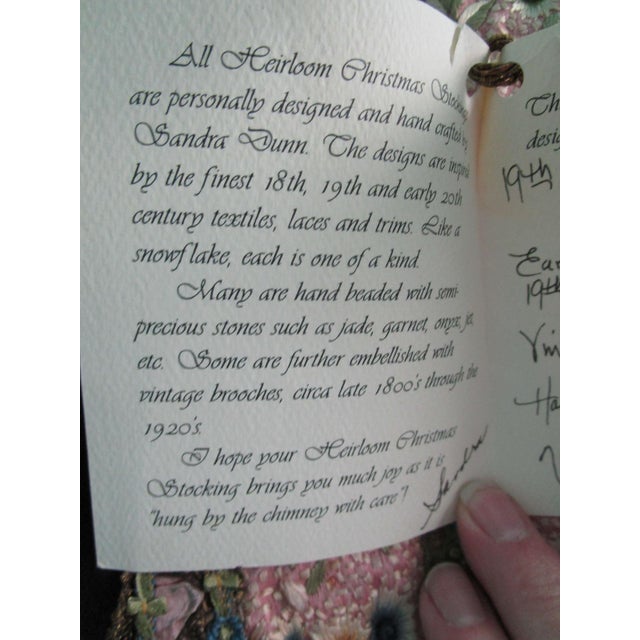 All Heirloom Christmas Stockings
are personally designed and hand crafted by
Sandra Dunn. The designs are inspired
by the finest 18th, 19th and early 20th
century textiles, laces and trims. Like a
snowflake, each is one of a kind.
Many are hand beaded with semi-
precious stones such as jade, garnet, onyx, jet,
etc. Some are further embellished with
vintage brooches, circa late 1800's through the
1920's.
I hope your Heirloom Christmas
Stocking brings you much joy as it is
"hung by the chimney with care"!
Sandra
Th
desig
19th
Ear
19th
Vin
Ha